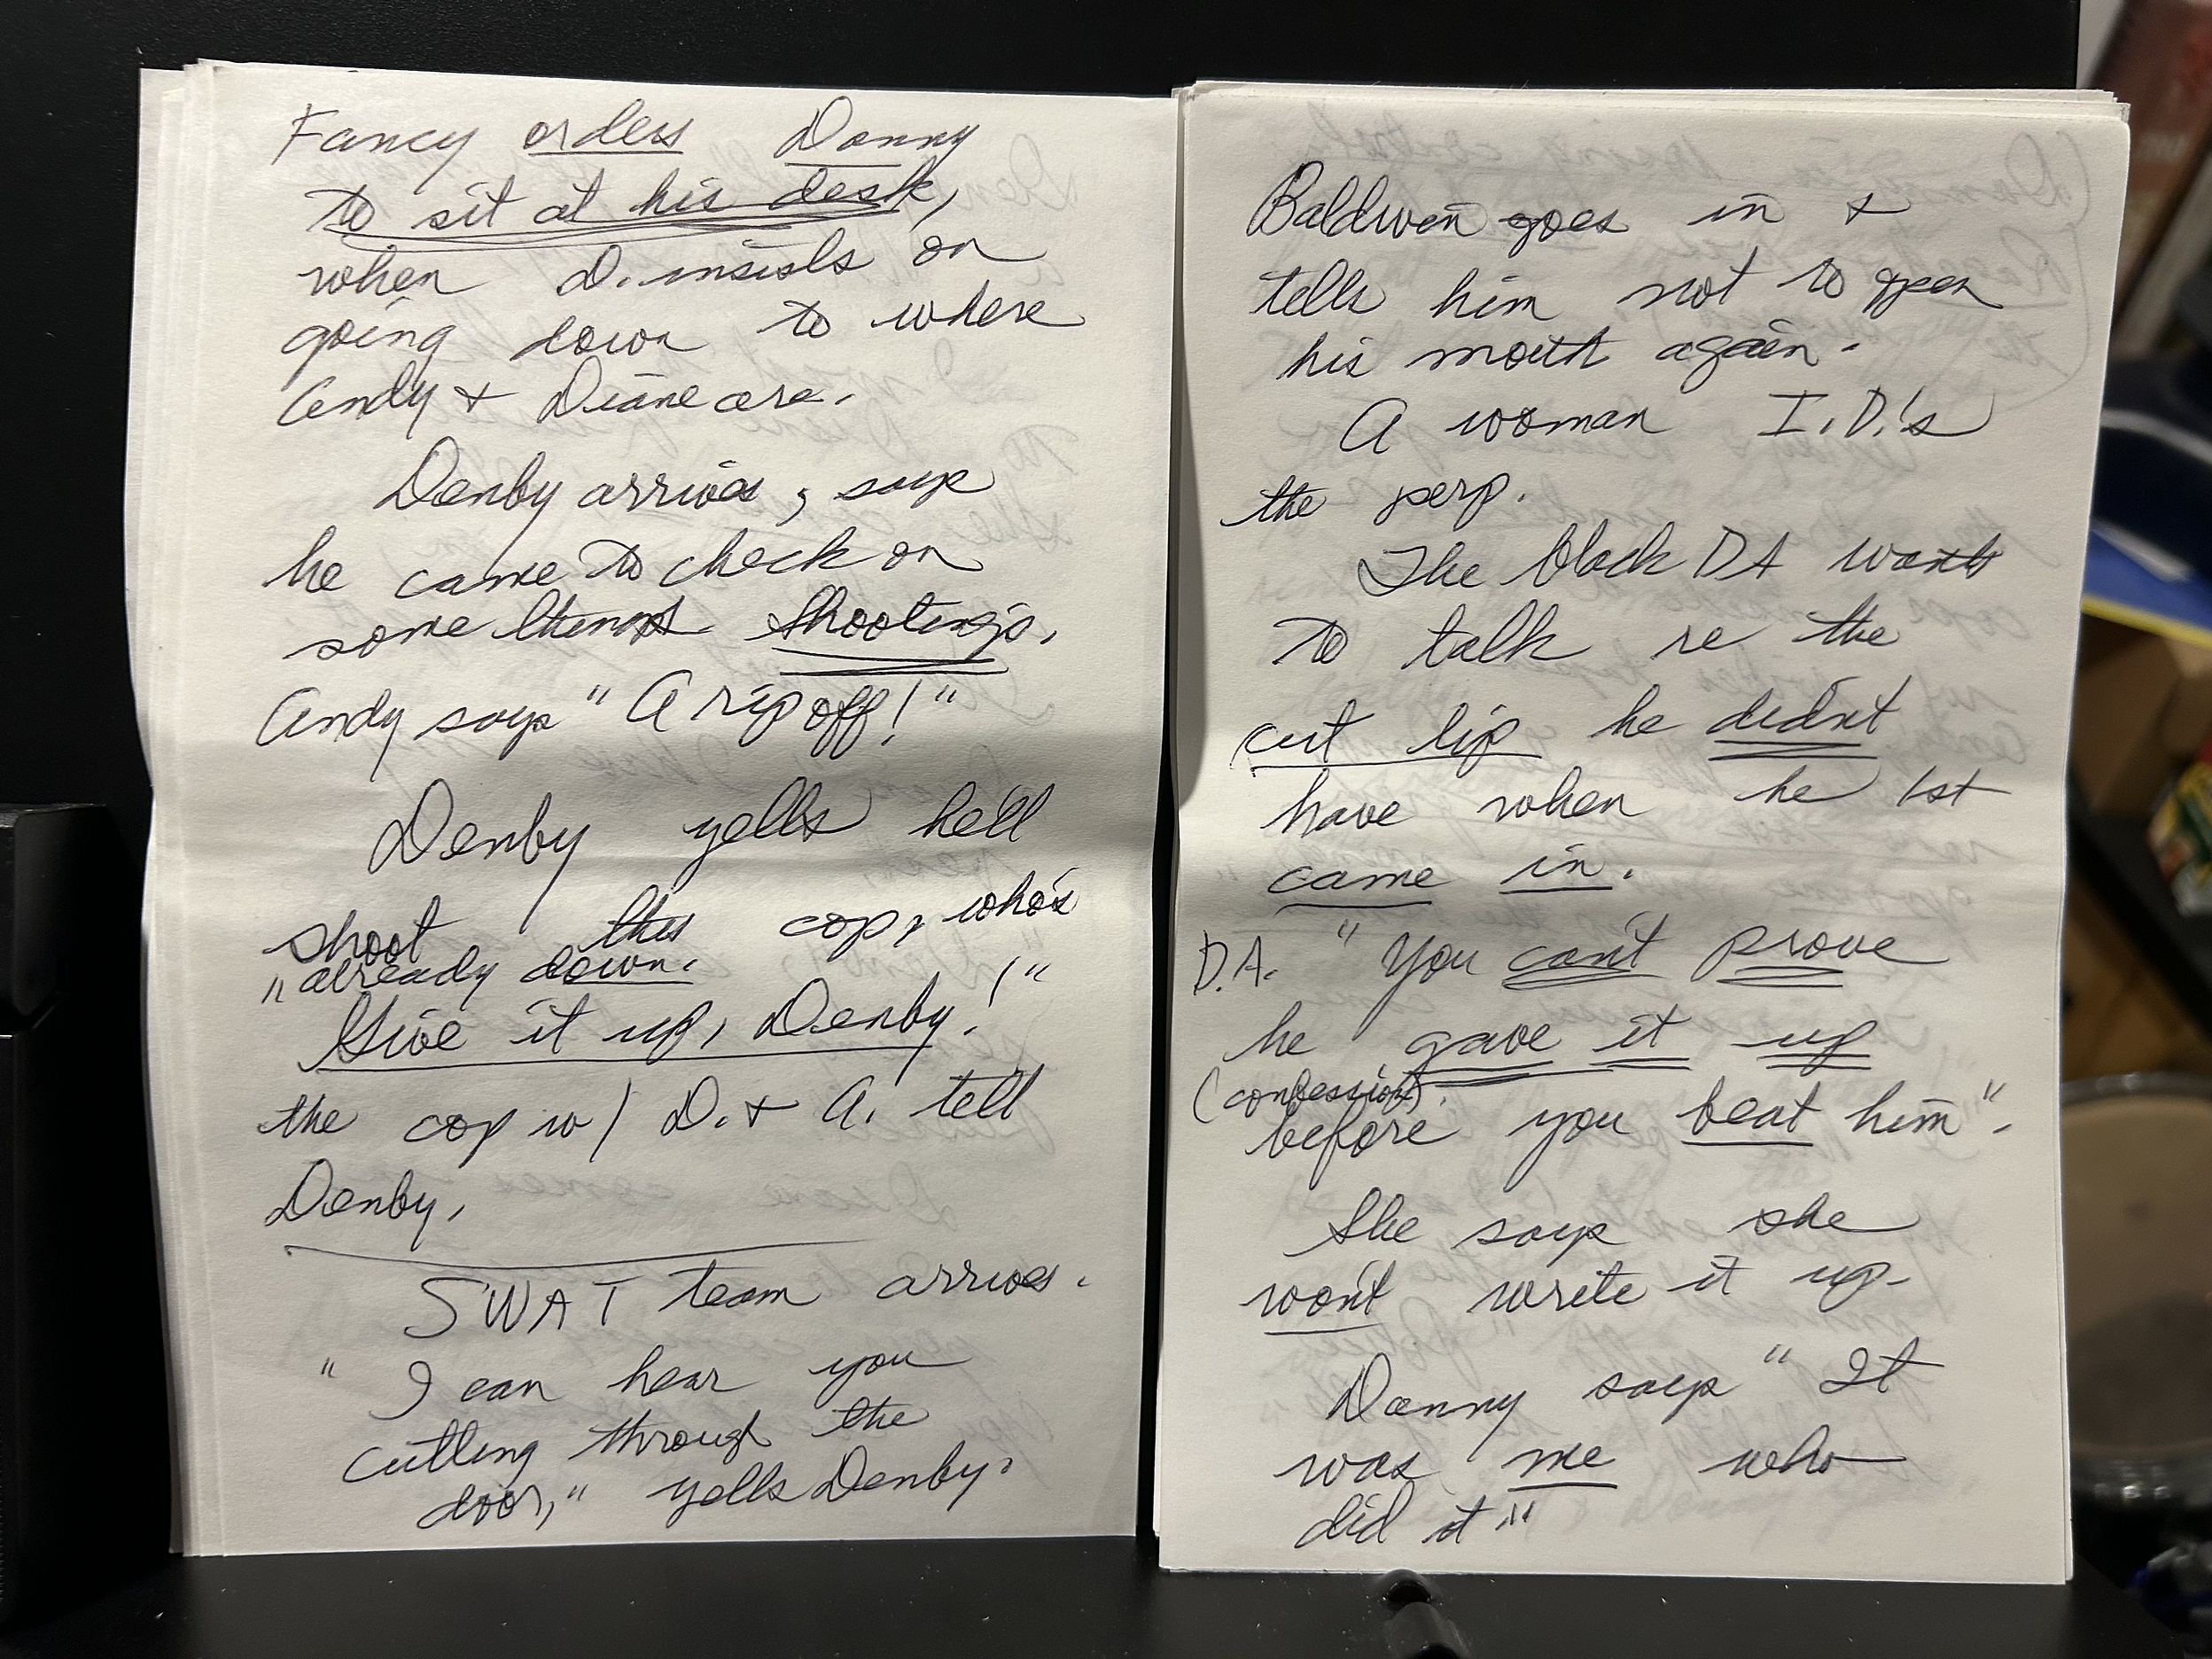 Fancy orders Danny
to sit at his desk,
when D. insists on
going down to where
Andy & Diane are.
Denby arrives, says
he came to check on
some shootings.
Andy says "A rip off!"
Denby yells he'll
shoot this cop, who's
"already down.
Give it up, Denby!"
the cop w/ D. & A. tell
Denby.
SWAT team arrives.
"I can hear you
cutting through the
door," yells Denby.
Baldwin goes in &
tells him not to open
his mouth again.
A woman I.D.'s
the perp.
The black DA wants
to talk re the
cut lip he didn't
have when he 1st
came in.
D.A. "You can't prove
he gave it up
(confession)
before you beat him".
She says she
won't write it up.
Danny says "It
was me who
did it"